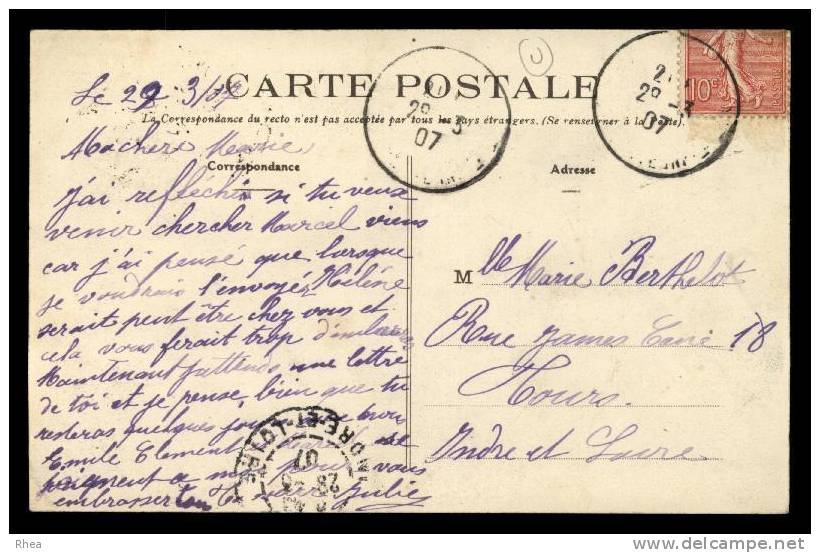 Le 29 3/07
CARTE POSTALE
La Correspondance du recto n'est pas acceptée par tous les pays étrangers. (Se renseigner à la Poste).
Correspondance
Adresse
Machere Marie
j'ai reflechie si tu veux
venir chercher Marcel viens
car j'ai pensé que lorsque
je voudrais l'envoyer Hélène
serait peut être chez vous et
cela vous ferait trop
Maintenant j'attends une lettre
de toi et je pense bien que tu
resteras quelques
Emile Clement
à moi pour vous
embrasser ton
Julie
Mlle Marie Berthelot
Rue James 18
Tours
Indre et Loire
29 -3
07
29 -3
07
10c
INDRE-ET-LOIRE
07
Rhea
delcampe.net